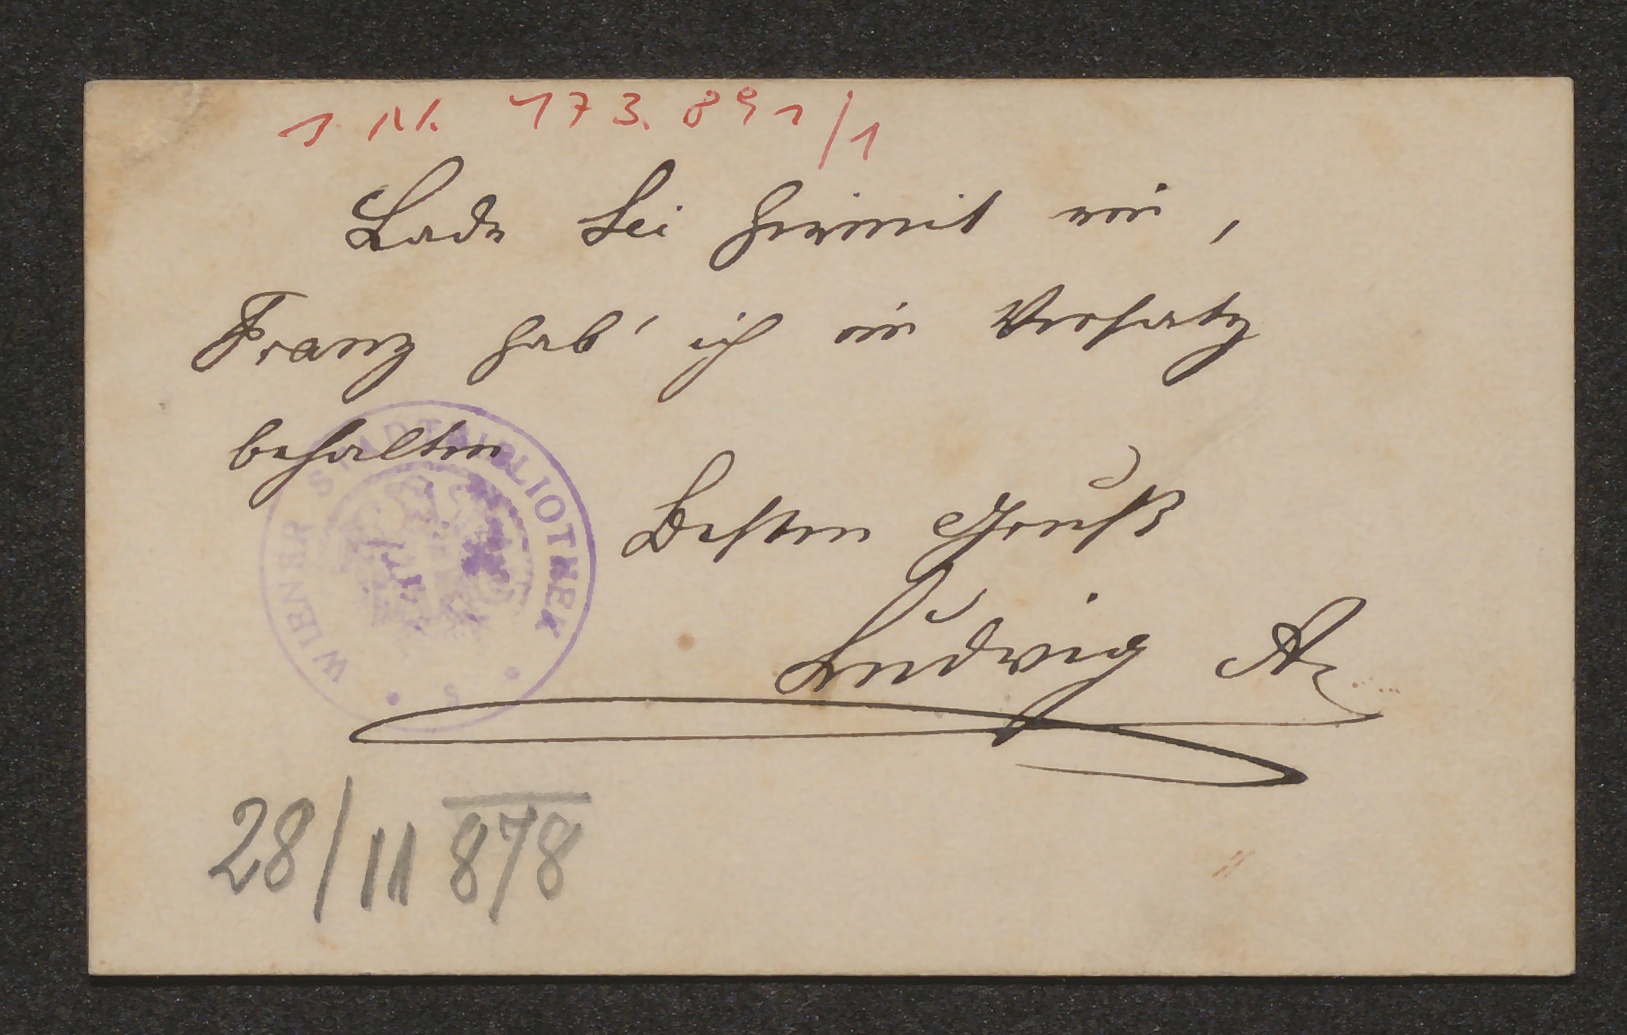 J. N. 173.891/1
Lade Sei hiemit ein,
Franz hab' ich im Versatz
behalten
Besten Gruß
Ludwig A
WIENER STADTBIBLIOTHEK
5
28/11 878